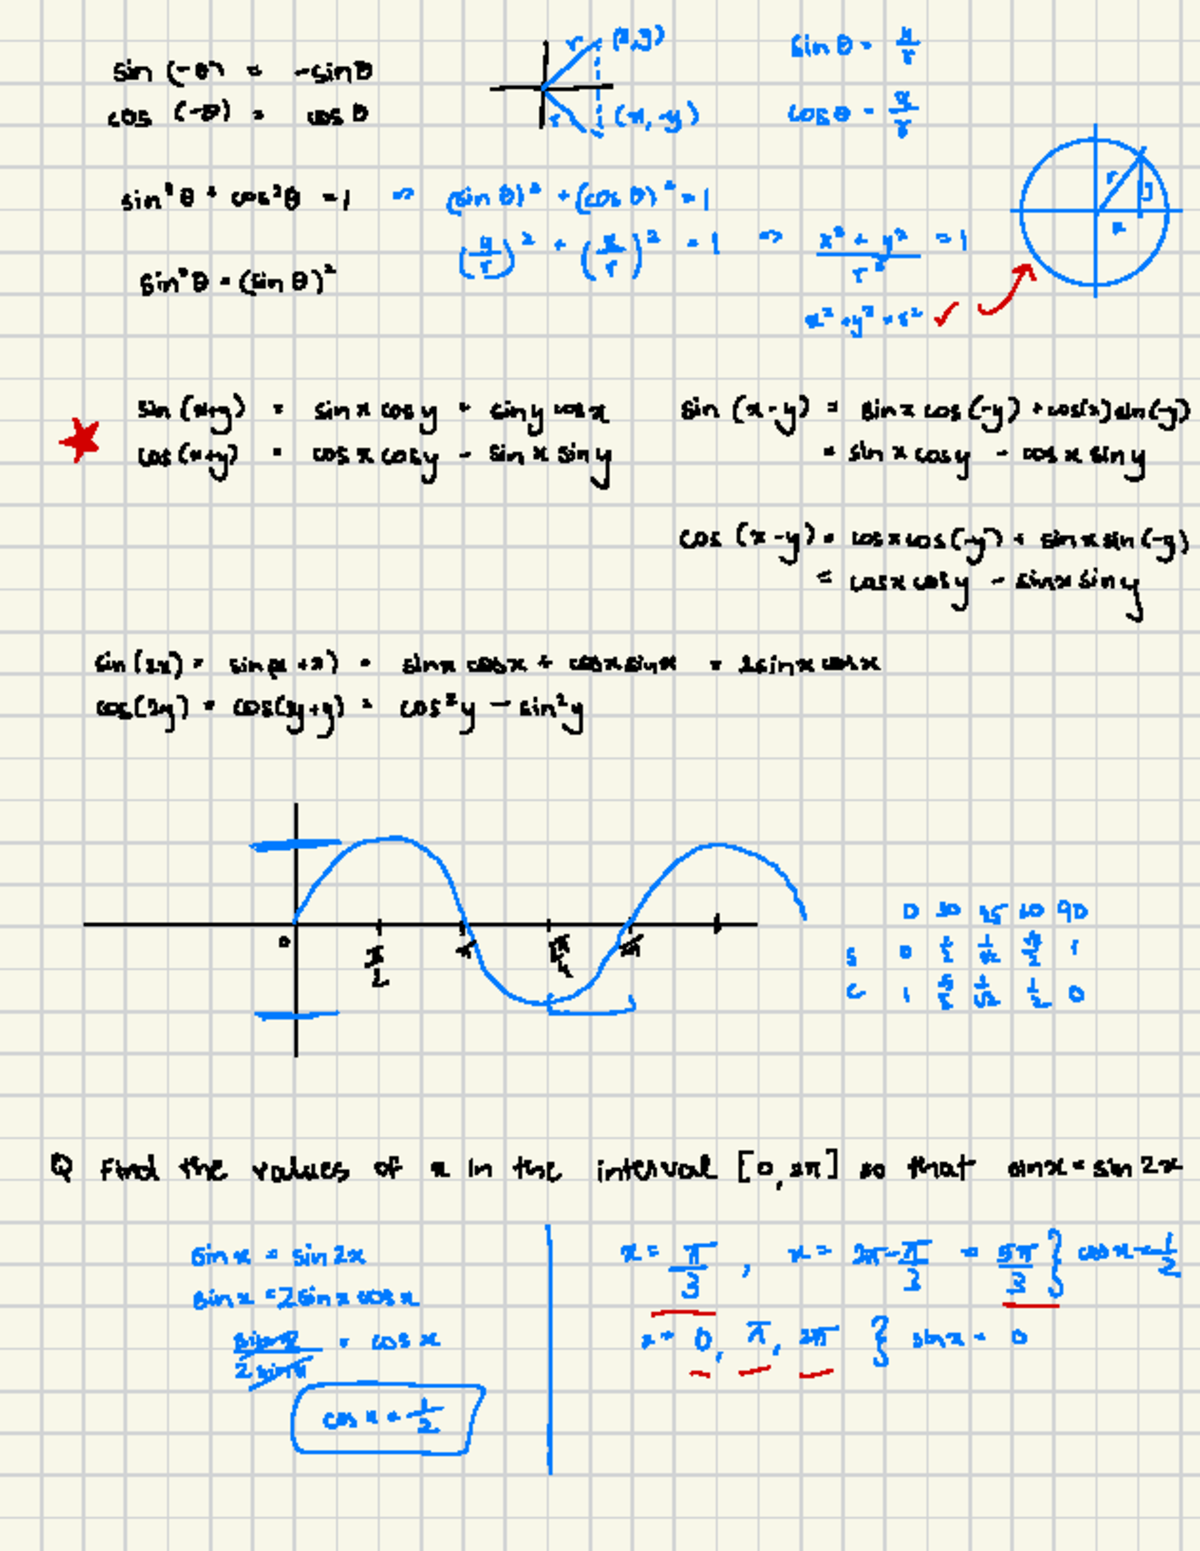 sin (-θ) = -sinθ
cos (-θ) = cos θ
r (x,y)
r (x,-y)
sin θ = y/r
cos θ = x/r
sin²θ + cos²θ = 1 => (sin θ)² + (cos θ)² = 1
(y/r)² + (x/r)² = 1 => (x² + y²)/r² = 1
sin²θ = (sin θ)²
x² + y² = r² ✓
r y
x
★ sin (x+y) = sin x cos y + sin y cos x
cos (x+y) = cos x cos y - sin x sin y
sin (x-y) = sin x cos (-y) + cos(x) sin(-y)
= sin x cos y - cos x sin y
cos (x-y) = cos x cos (-y) + sin x sin (-y)
= cos x cos y - sin x sin y
sin (2x) = sin(x + x) = sin x cos x + cos x sin x = 2 sin x cos x
cos(2y) = cos(y+y) = cos²y - sin²y
0 π/2 π 2π
0 30 45 60 90
S 0 1/2 1/√2 √3/2 1
C 1 √3/2 1/√2 1/2 0
Q Find the values of x in the interval [0, 2π] so that sin x = sin 2x
sin x = sin 2x
sin x = 2 sin x cos x
sin x / 2 sin x = cos x
cos x = 1/2
x = π/3 , x = 2π - π/3 = 5π/3 } cos x = 1/2
x = 0, π, 2π } sin x = 0